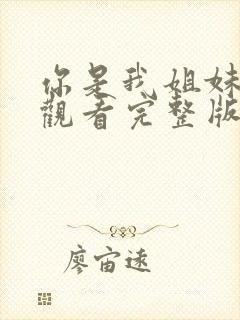 你是我姐妹
觀看完整版
廖宙遠